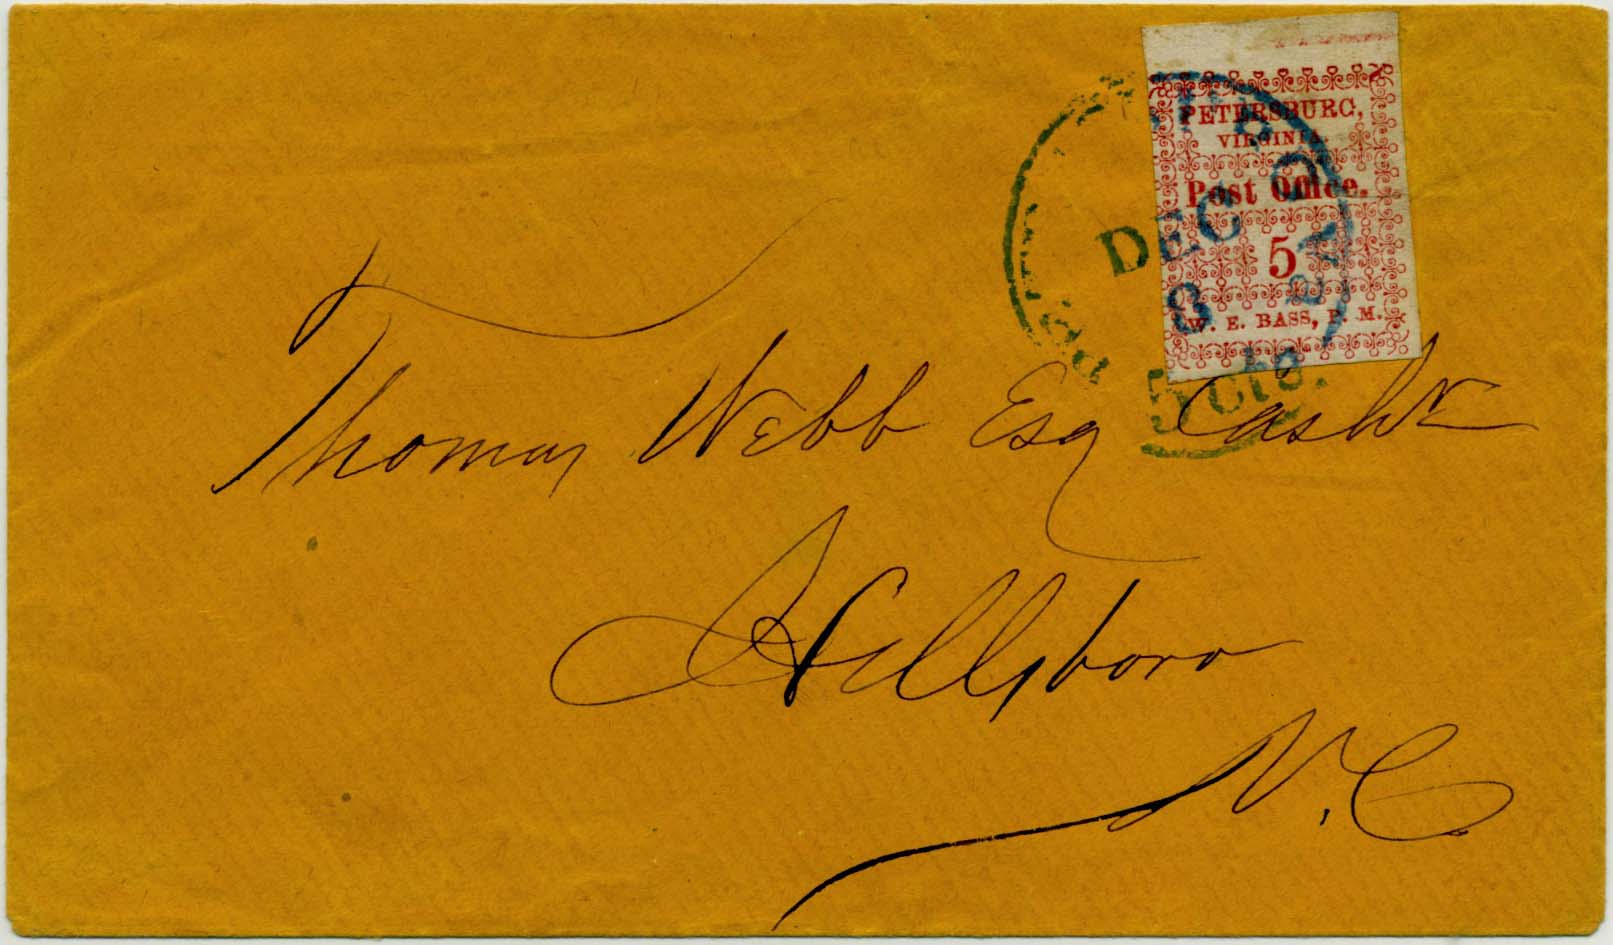 PETERSBURG,
VIRGINIA.
Post Office.
5
W. E. BASS, P. M.
DEC
8
5 cts.
Thomas Webb Esq Cashr
Hillsboro
N.C